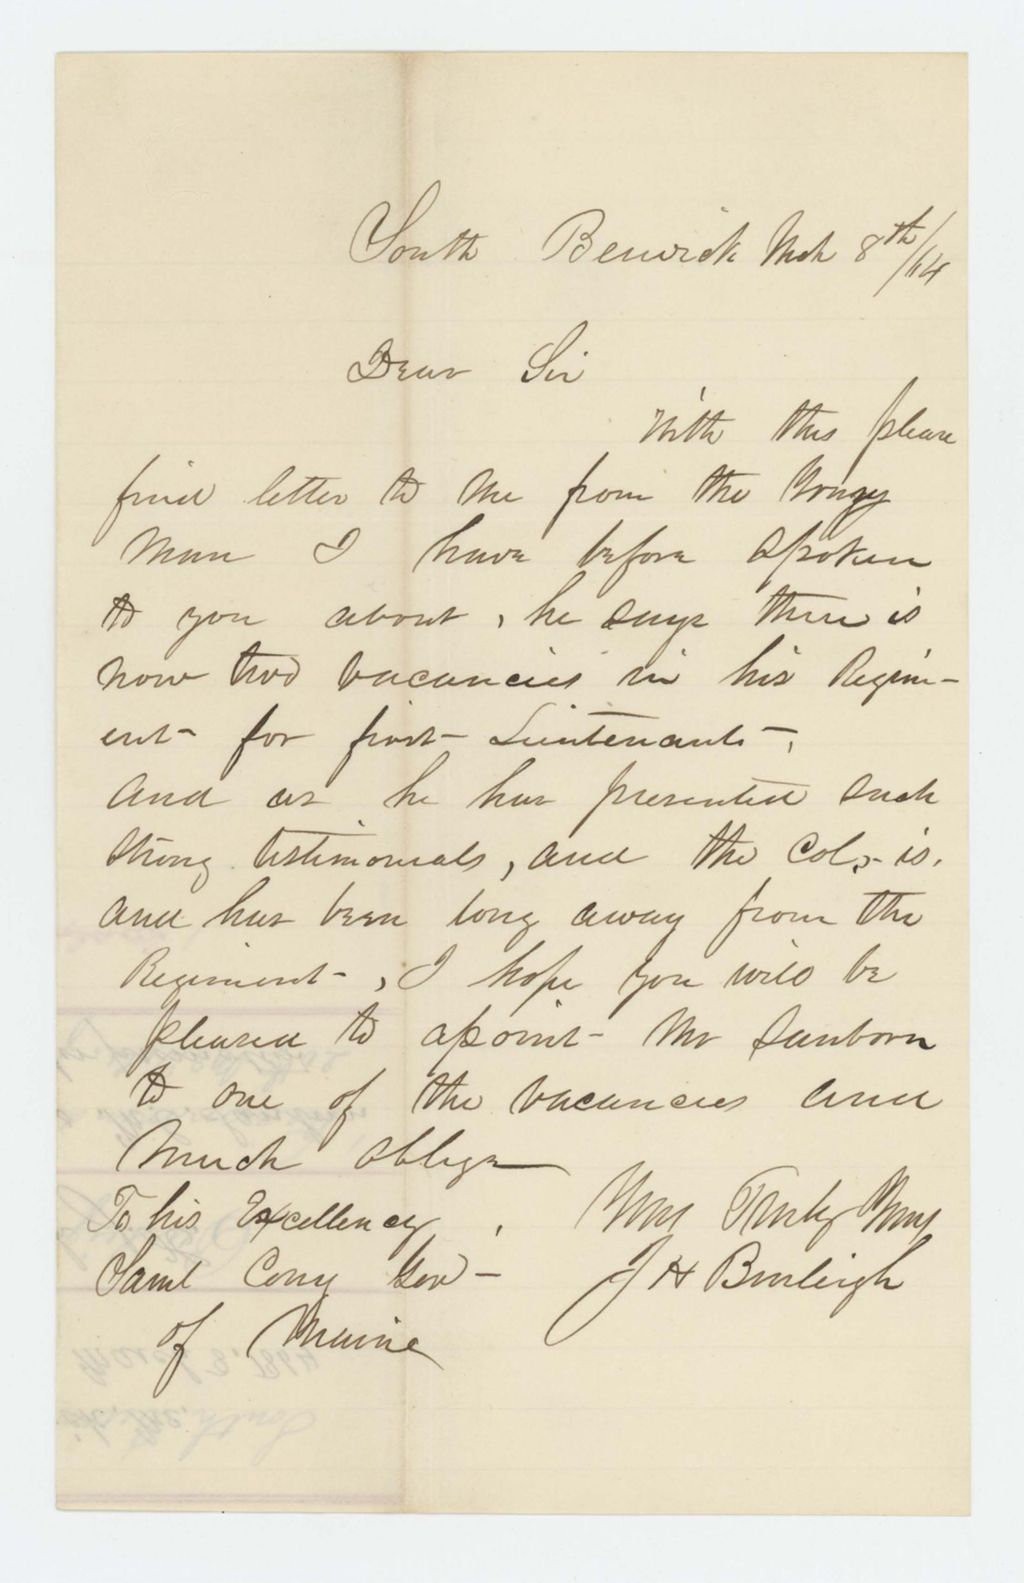 South Berwick Mch 8th/64
Dear Sir
With this please
find letter to me from the Young
Man I have before spoken
to you about, he says there is
now two vacancies in his Regim-
ent for first Lieutenants,
and as he has presented such
strong testimonials, and the Col, is.
and has been long away from the
Regiment, I hope you will be
pleased to apoint Mr Sanborn
to one of the vacancies and
much oblige
To his Excellency, Very Truly Yours
Saml Cony Gov J H Burleigh
of Maine